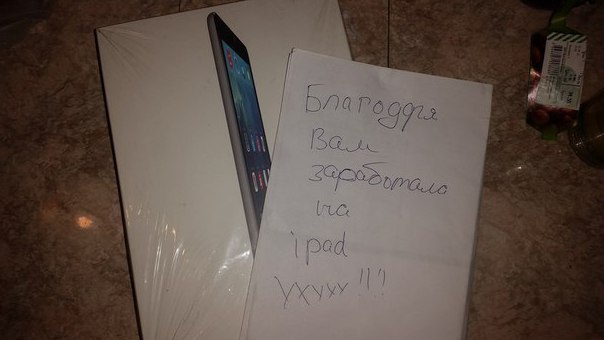 Благодоря
Вам
заработала
на
ipad
ухууу !!!